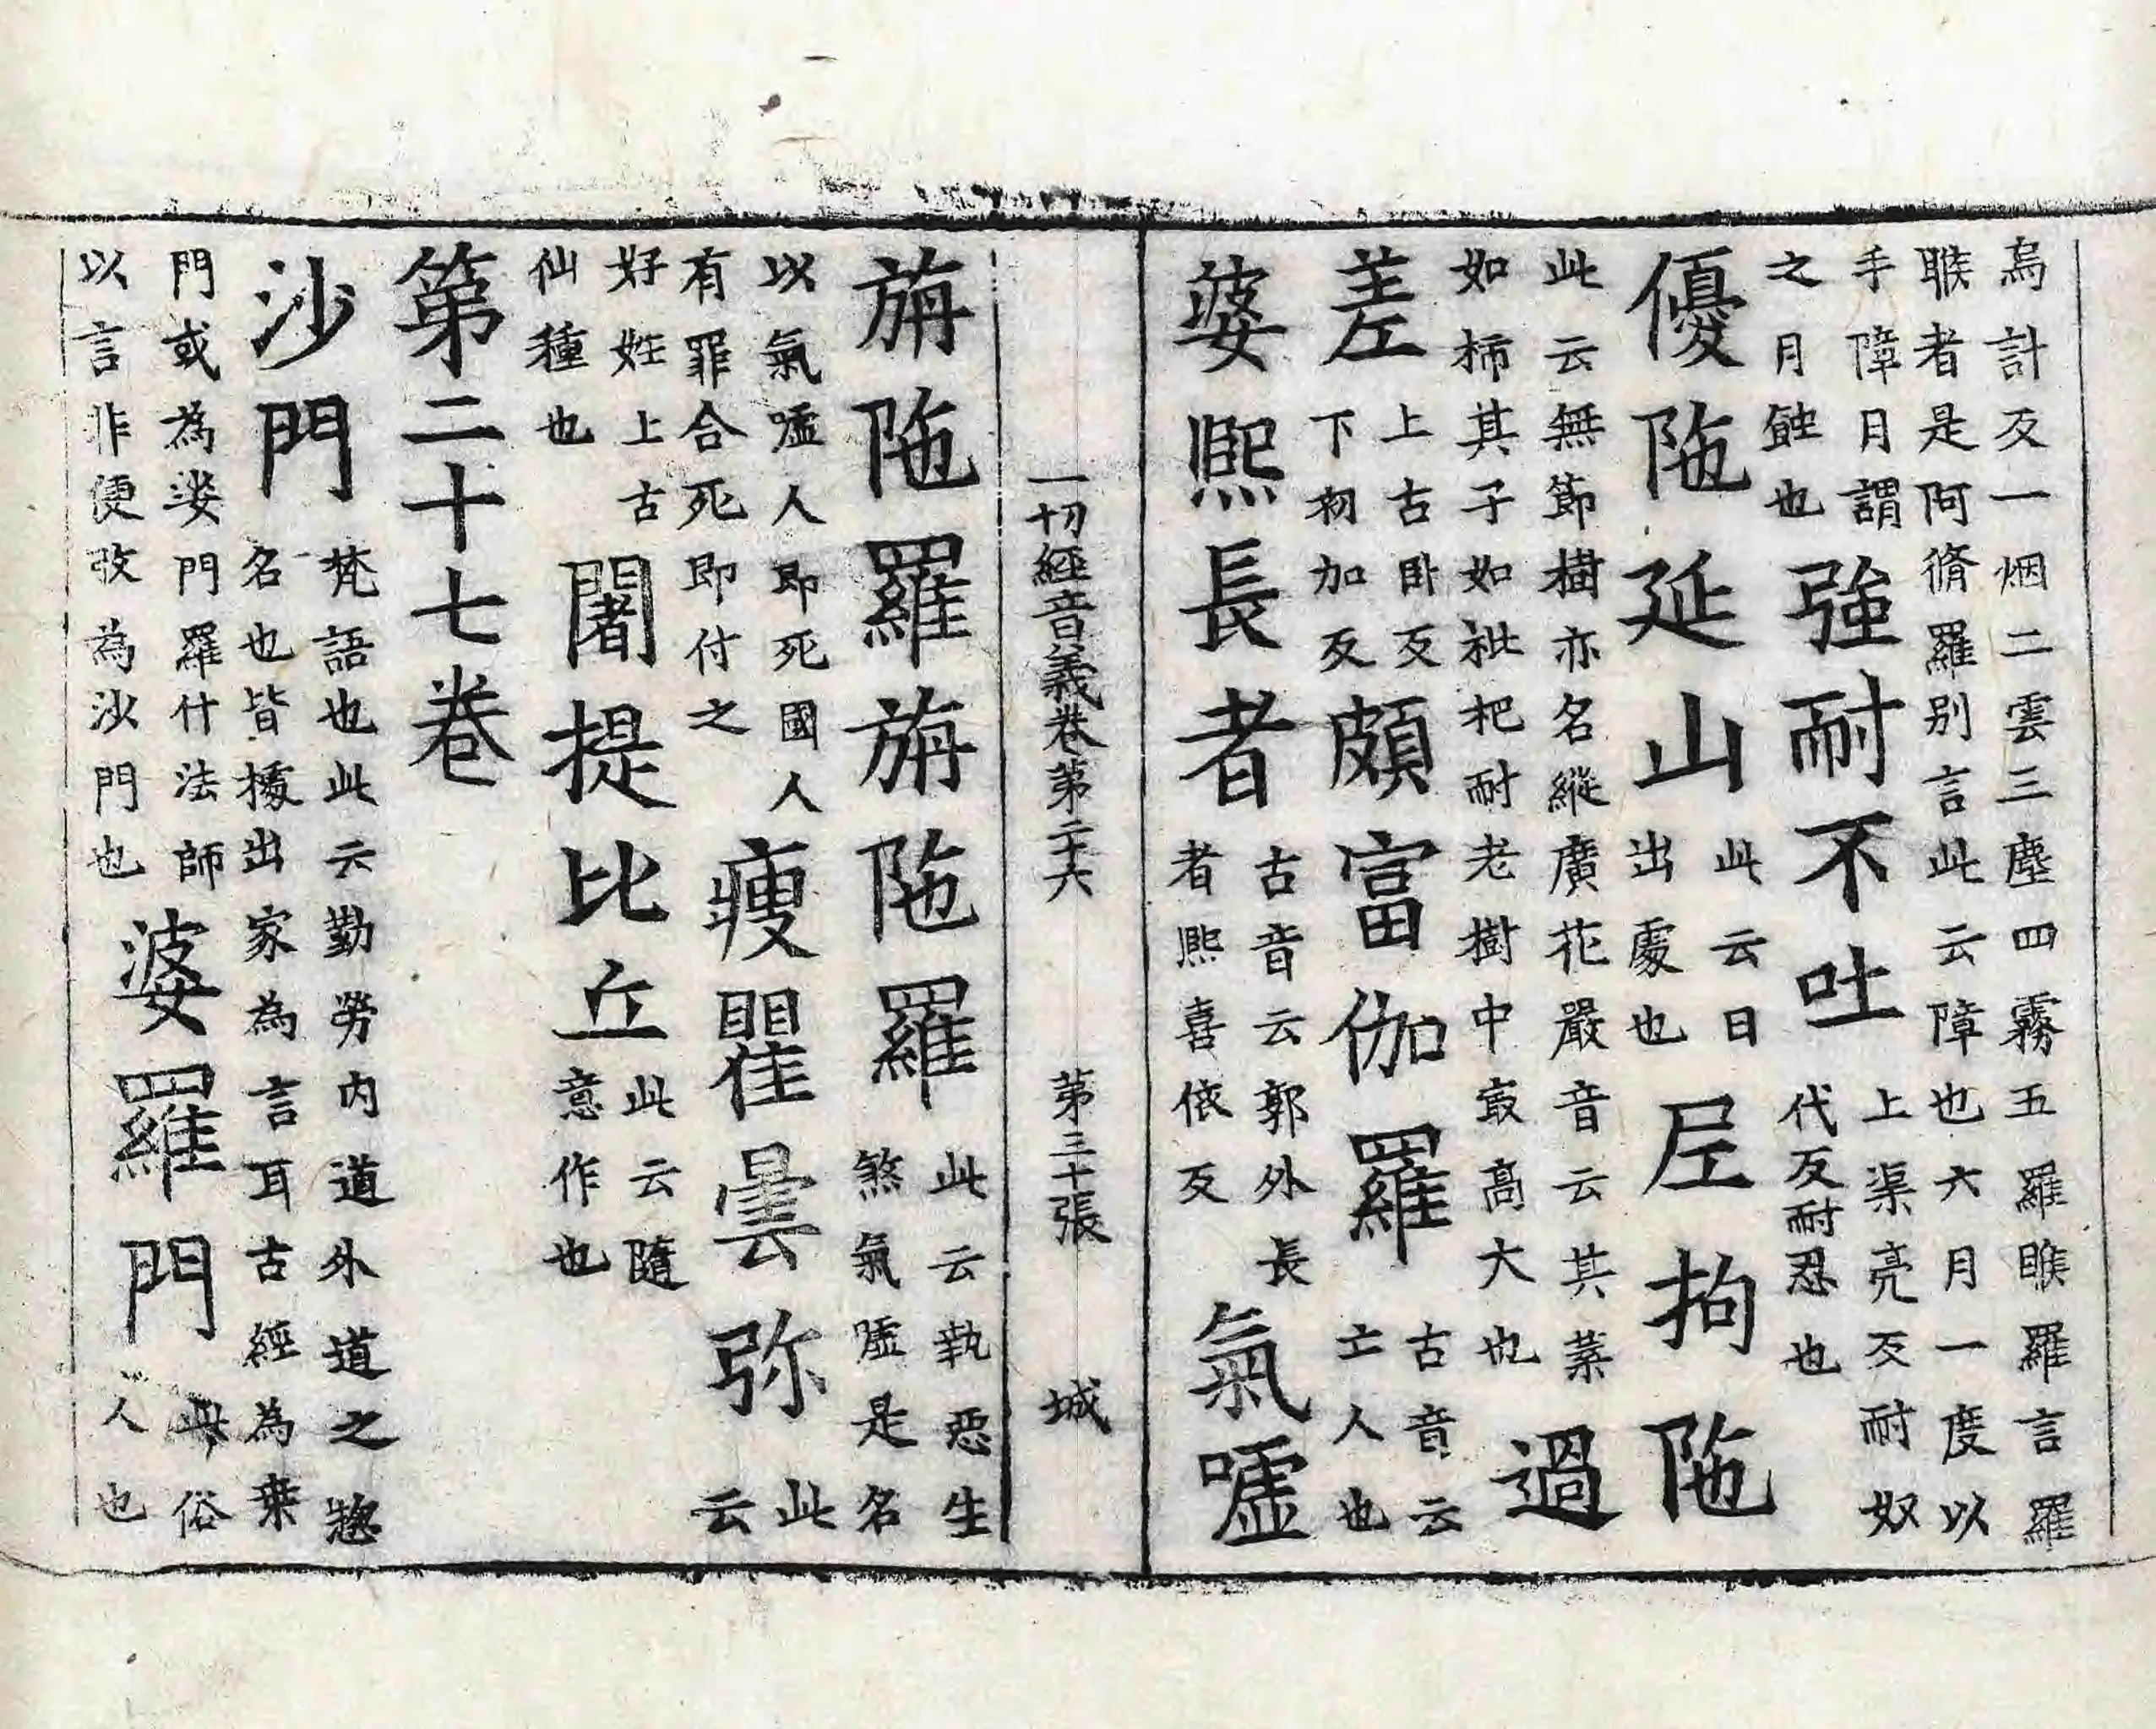 烏計反一烟二雲三塵四霧五羅睺羅言羅
睺者是阿脩羅別言此云障也六月一度以
手障月謂之月蝕也強耐不吐上渠亮反耐奴代反耐忍也
優陁延山此云日出處也尼拘陁
此云無節樹亦名縱廣花嚴音云其葉如柿其子如枇杷耐老樹中㝡高大也過
差上古卧反下初加反頗富伽羅古音云士人也
婆熙長者古音云郭外長者熙喜依反氣嘘
一切經音義卷第二十六 第三十張 城
旃陁羅旃陁羅此云執惡生煞氣嘘是名
以氣嘘人即死國人有罪合死即付之瘦瞿曇弥此云
好姓上古仙種也闍提比丘此云隨意作也
第二十七卷
沙門梵語也此云勤勞内道外道之惣名也皆據出家為言耳古經為桒
門或為娑門羅什法師以言非便改為沙門也婆羅門此俗人也